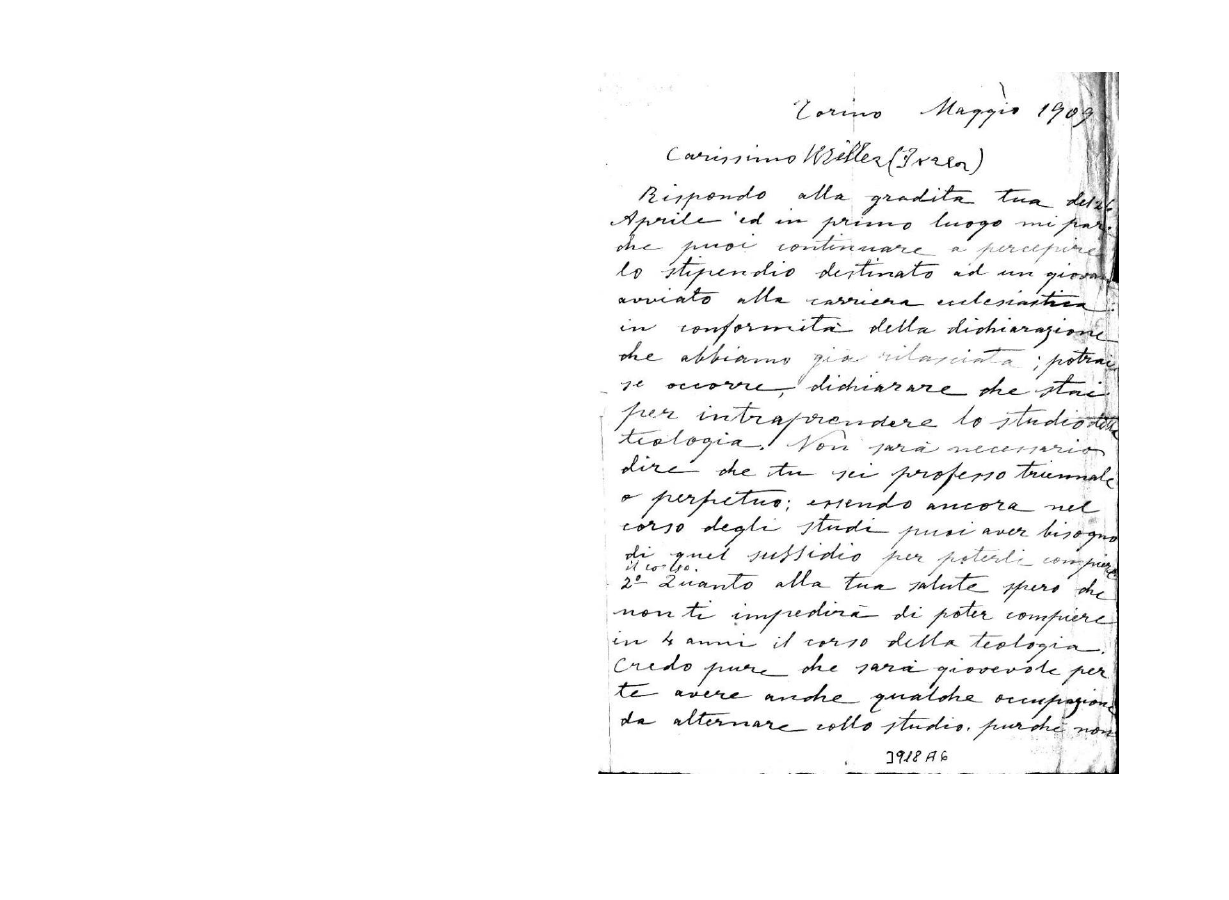 Torino Maggio 1909
Carissimo
Rispondo alla gradita tua del 26
Aprile ed in primo luogo mi par
che puoi continuare a percepire
lo stipendio destinato ad un giovan
avviato alla carriera ecclesiastica:
in conformità della dichiarazione
che abbiamo già rilasciata; potrai
se occorre, dichiarare che stai
per intraprendere lo studio della
teologia. Non sarà necessario
dire che tu sei professo triennale
o perpetuo; essendo ancora nel
corso degli studi puoi aver bisogno
di quel sussidio per poterli compiere
il corso.
2º Quanto alla tua salute spero che
non ti impedirà di poter compiere
in 4 anni il corso della teologia.
Credo pure che sarà giovevole per
te avere anche qualche occupazione
da alternare collo studio. purchè non
3918 A6